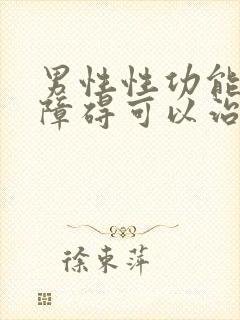 男性性功能
障碍可以治
徐东萍